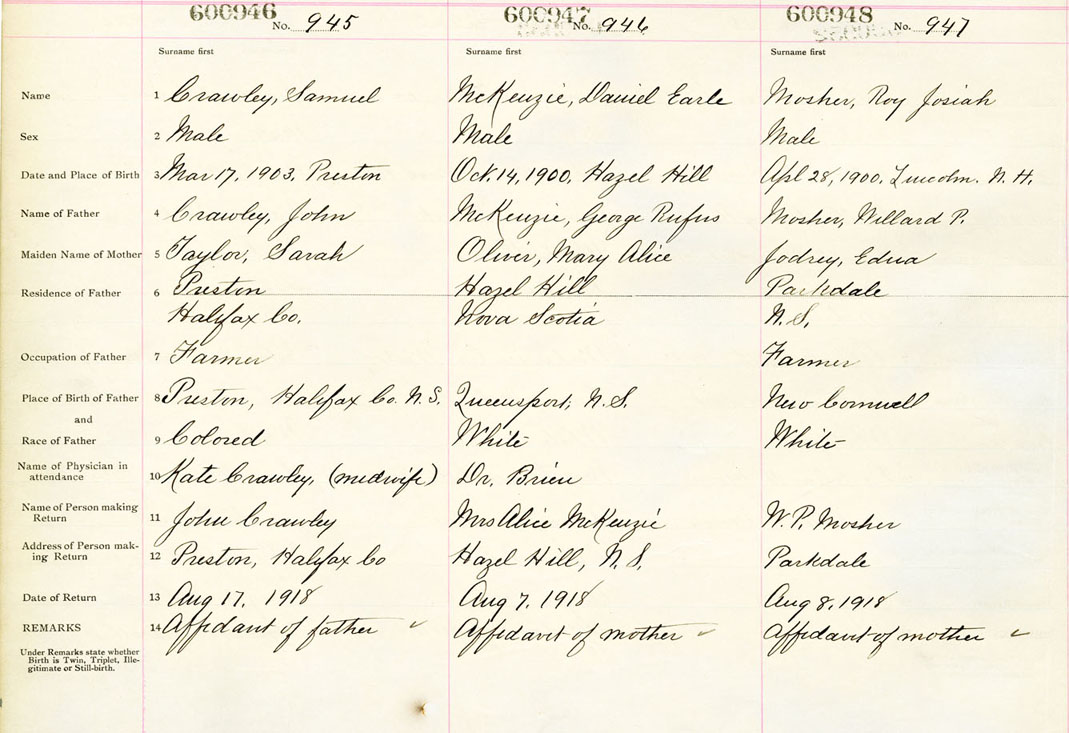 600946 No. 945 600947 No. 946 600948 No. 947
Surname first Surname first Surname first
Name 1 Crawley, Samuel McKenzie, Daniel Earle Mosher, Roy Josiah
Sex 2 Male Male Male
Date and Place of Birth 3 Mar 17, 1903, Preston Oct. 14, 1900, Hazel Hill Apl 28, 1900, Lincoln. N. H.
Name of Father 4 Crawley, John McKenzie, George Rufus Mosher, Willard P.
Maiden Name of Mother 5 Taylor, Sarah Oliver, Mary Alice Jodrey, Edna
Residence of Father 6 Preston Hazel Hill Parkdale
Halifax Co. Nova Scotia N.S.
Occupation of Father 7 Farmer Farmer
Place of Birth of Father 8 Preston, Halifax Co. N.S. Queensport, N.S. New Cornwell
and
Race of Father 9 Colored White White
Name of Physician in
attendance 10 Kate Crawley, (midwife) Dr. Brien
Name of Person making
Return 11 John Crawley Mrs Alice McKenzie W. P. Mosher
Address of Person mak-
ing Return 12 Preston, Halifax Co Hazel Hill, N.S. Parkdale
Date of Return 13 Aug 17, 1918 Aug 7, 1918 Aug 8, 1918
REMARKS 14 Affidavit of father Affidavit of mother Affidavit of mother
Under Remarks state whether
Birth is Twin, Triplet, Ille-
gitimate or Still-birth.